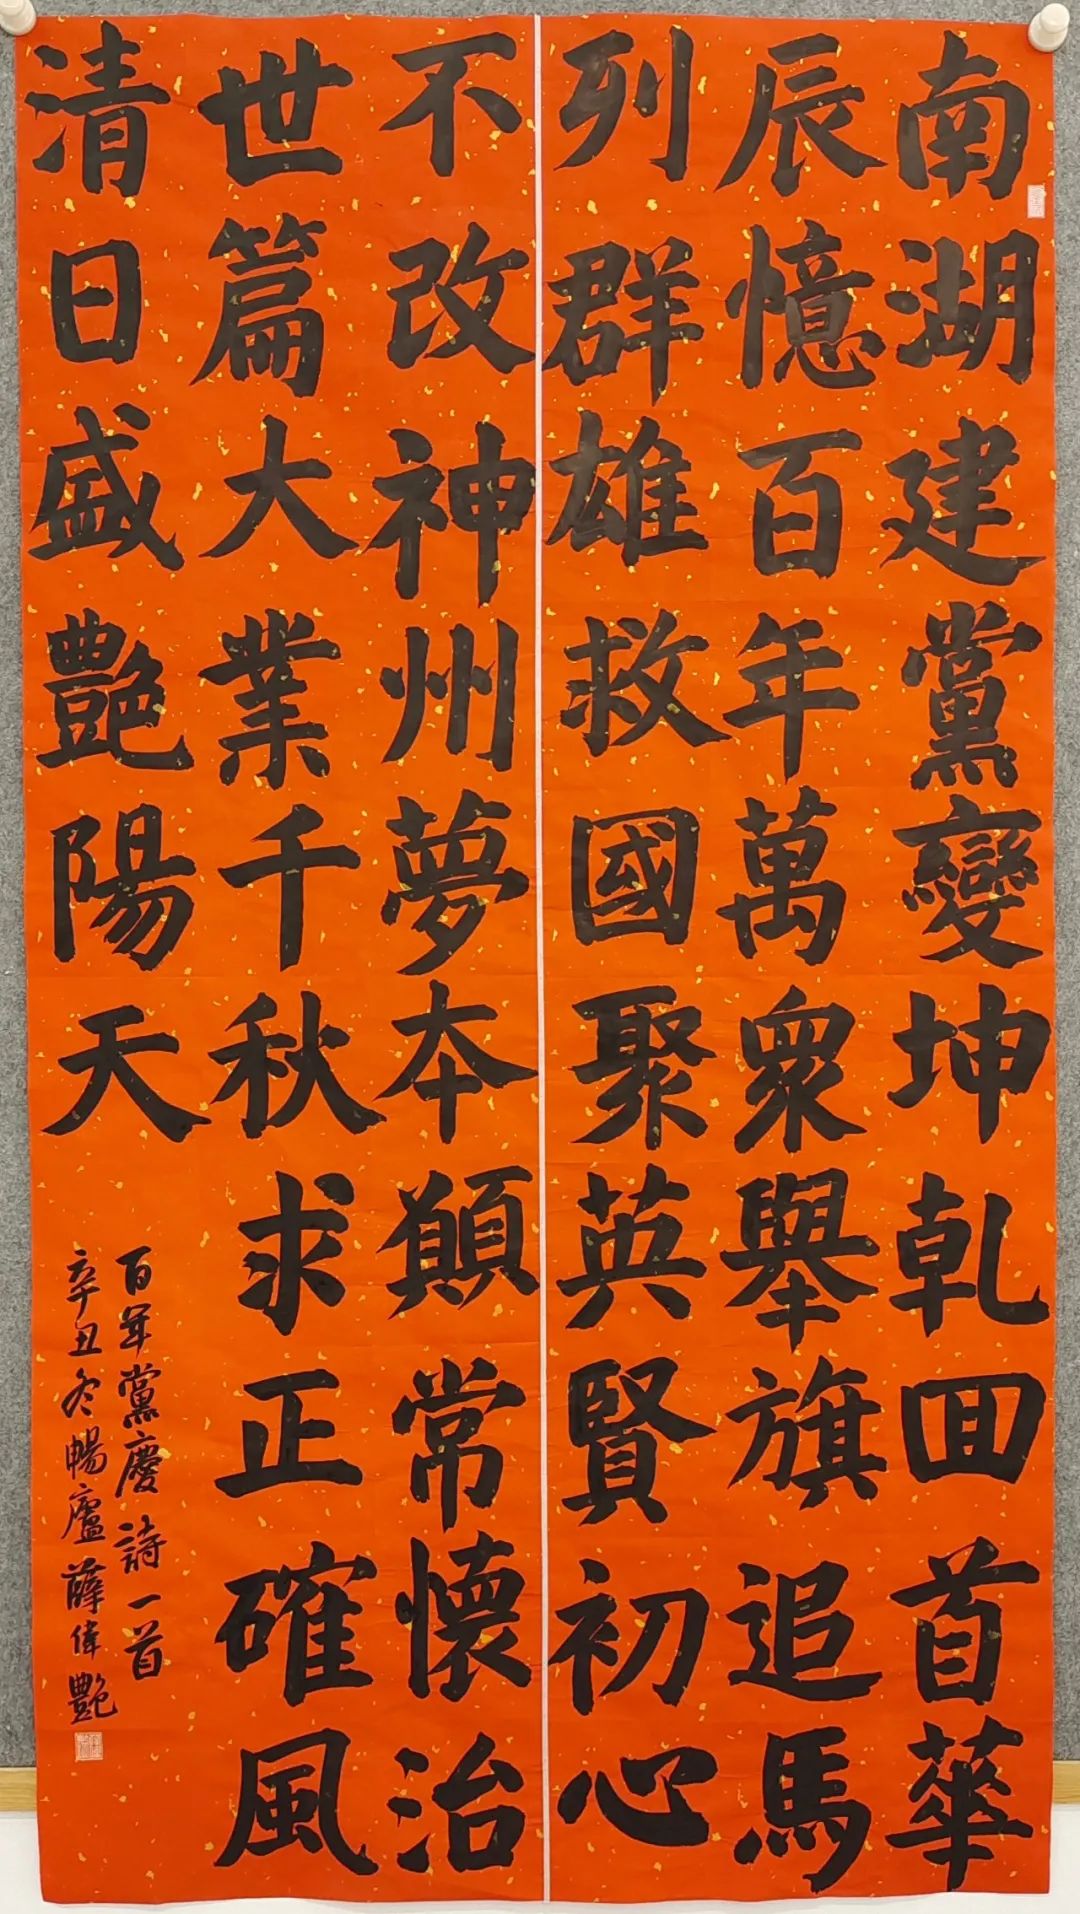 南湖建黨變坤乾回首華
辰憶百年萬眾舉旗追馬
列群雄救國聚英賢初心
不改神州夢本願常懷治
世篇大業千秋求正確風
清日盛艷陽天
百年黨慶詩一首
辛丑冬暢廬薛偉艷